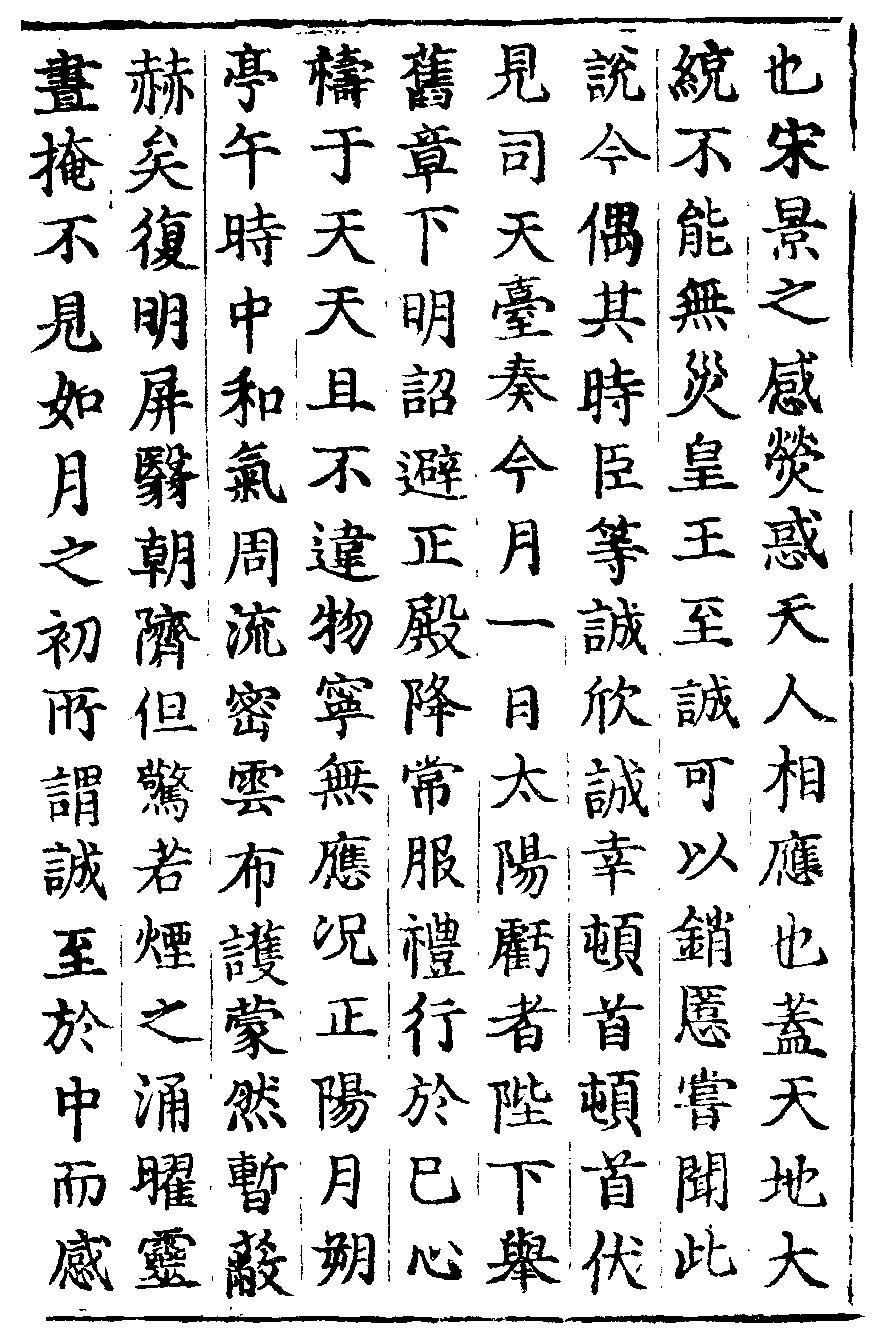 也宋景之感熒惑天人相應也蓋天地大
綂不能無災皇王至誠可以銷慝嘗聞此
說今偶其時臣等誠欣誠幸頓首頓首伏
見司天臺奏今月一日太陽虧者陛下舉
舊章下明詔避正殿降常服禮行於已心
檮于天天且不違物寧無應况正陽月朔
亭午時中和氣周流密雲布護蒙然暫蔽
赫矣復明屏翳朝隮但驚若煙之涌曜靈
晝掩不見如月之初所謂誠至於中而感